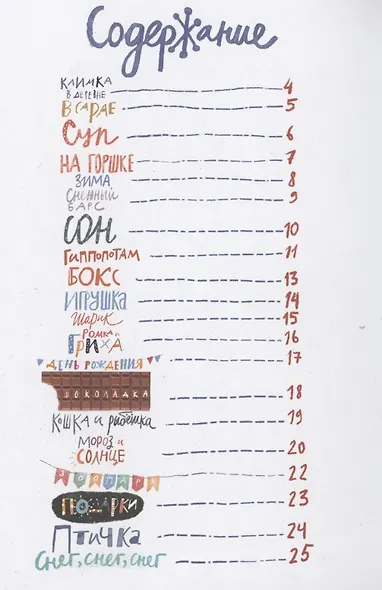 Содержание
КЛИМКА
В ДЕРЕВНЕ 4
В САРАЕ 5
Суп 6
НА ГОРШКЕ 7
ЗИМА 8
СНЕЖНЫЙ
БАРС 9
СОН 10
ГИППОПОТАМ 11
БОКС 13
ИГРУШКА 14
Шарик 15
РОМКА И
ГРИХА 16
ДЕНЬ РОЖДЕНИЯ 17
ШОКОЛАДКА 18
КОШКА И РЫБЁШКА 19
МОРОЗ И
СОЛНЦЕ 20
ЗООПАРК 22
ПОДАРКИ 23
ПТИЧКА 24
СНЕГ, СНЕГ, СНЕГ 25